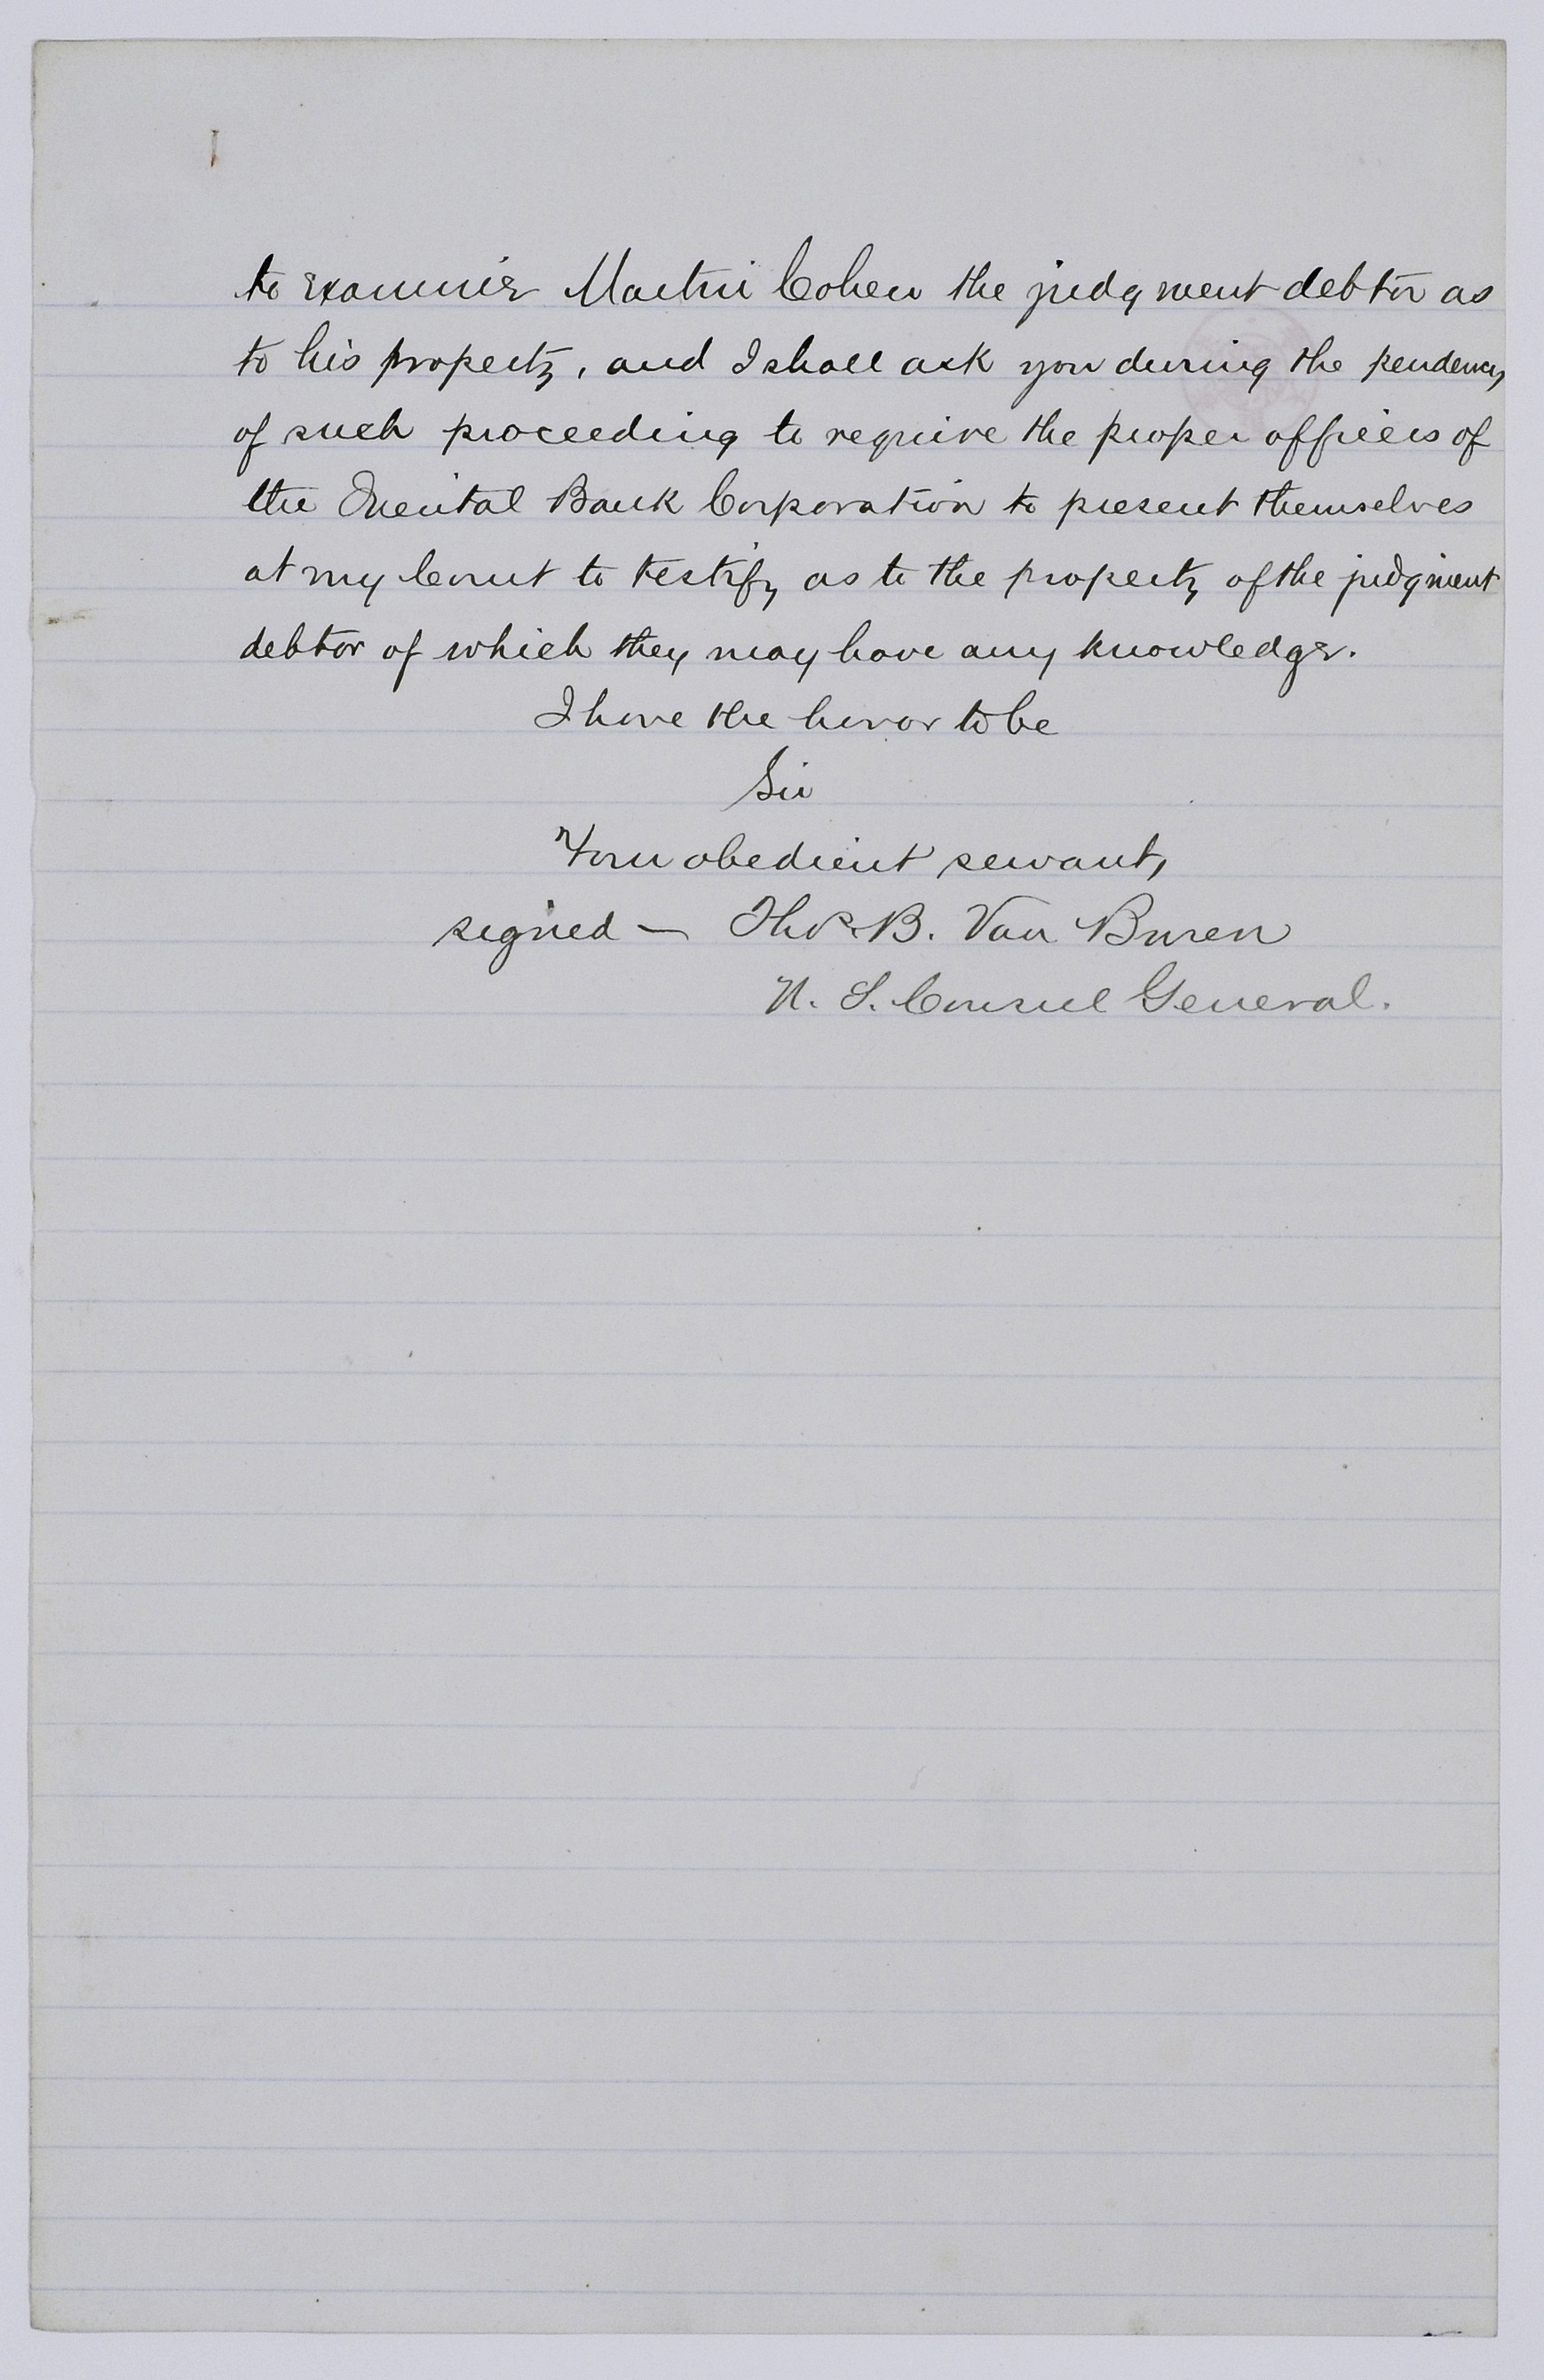 to examine Martin Cohen the judgment debtor as
to his property, and I shall ask you during the pendency
of such proceeding to require the proper officers of
the Oriental Bank Corporation to present themselves
at my Court to testify as to the property of the judgment
debtor of which they may have any knowledge.
I have the honor to be
Sir
Your obedient servant,
signed — Thos. B. Van Buren
U. S. Consul General.